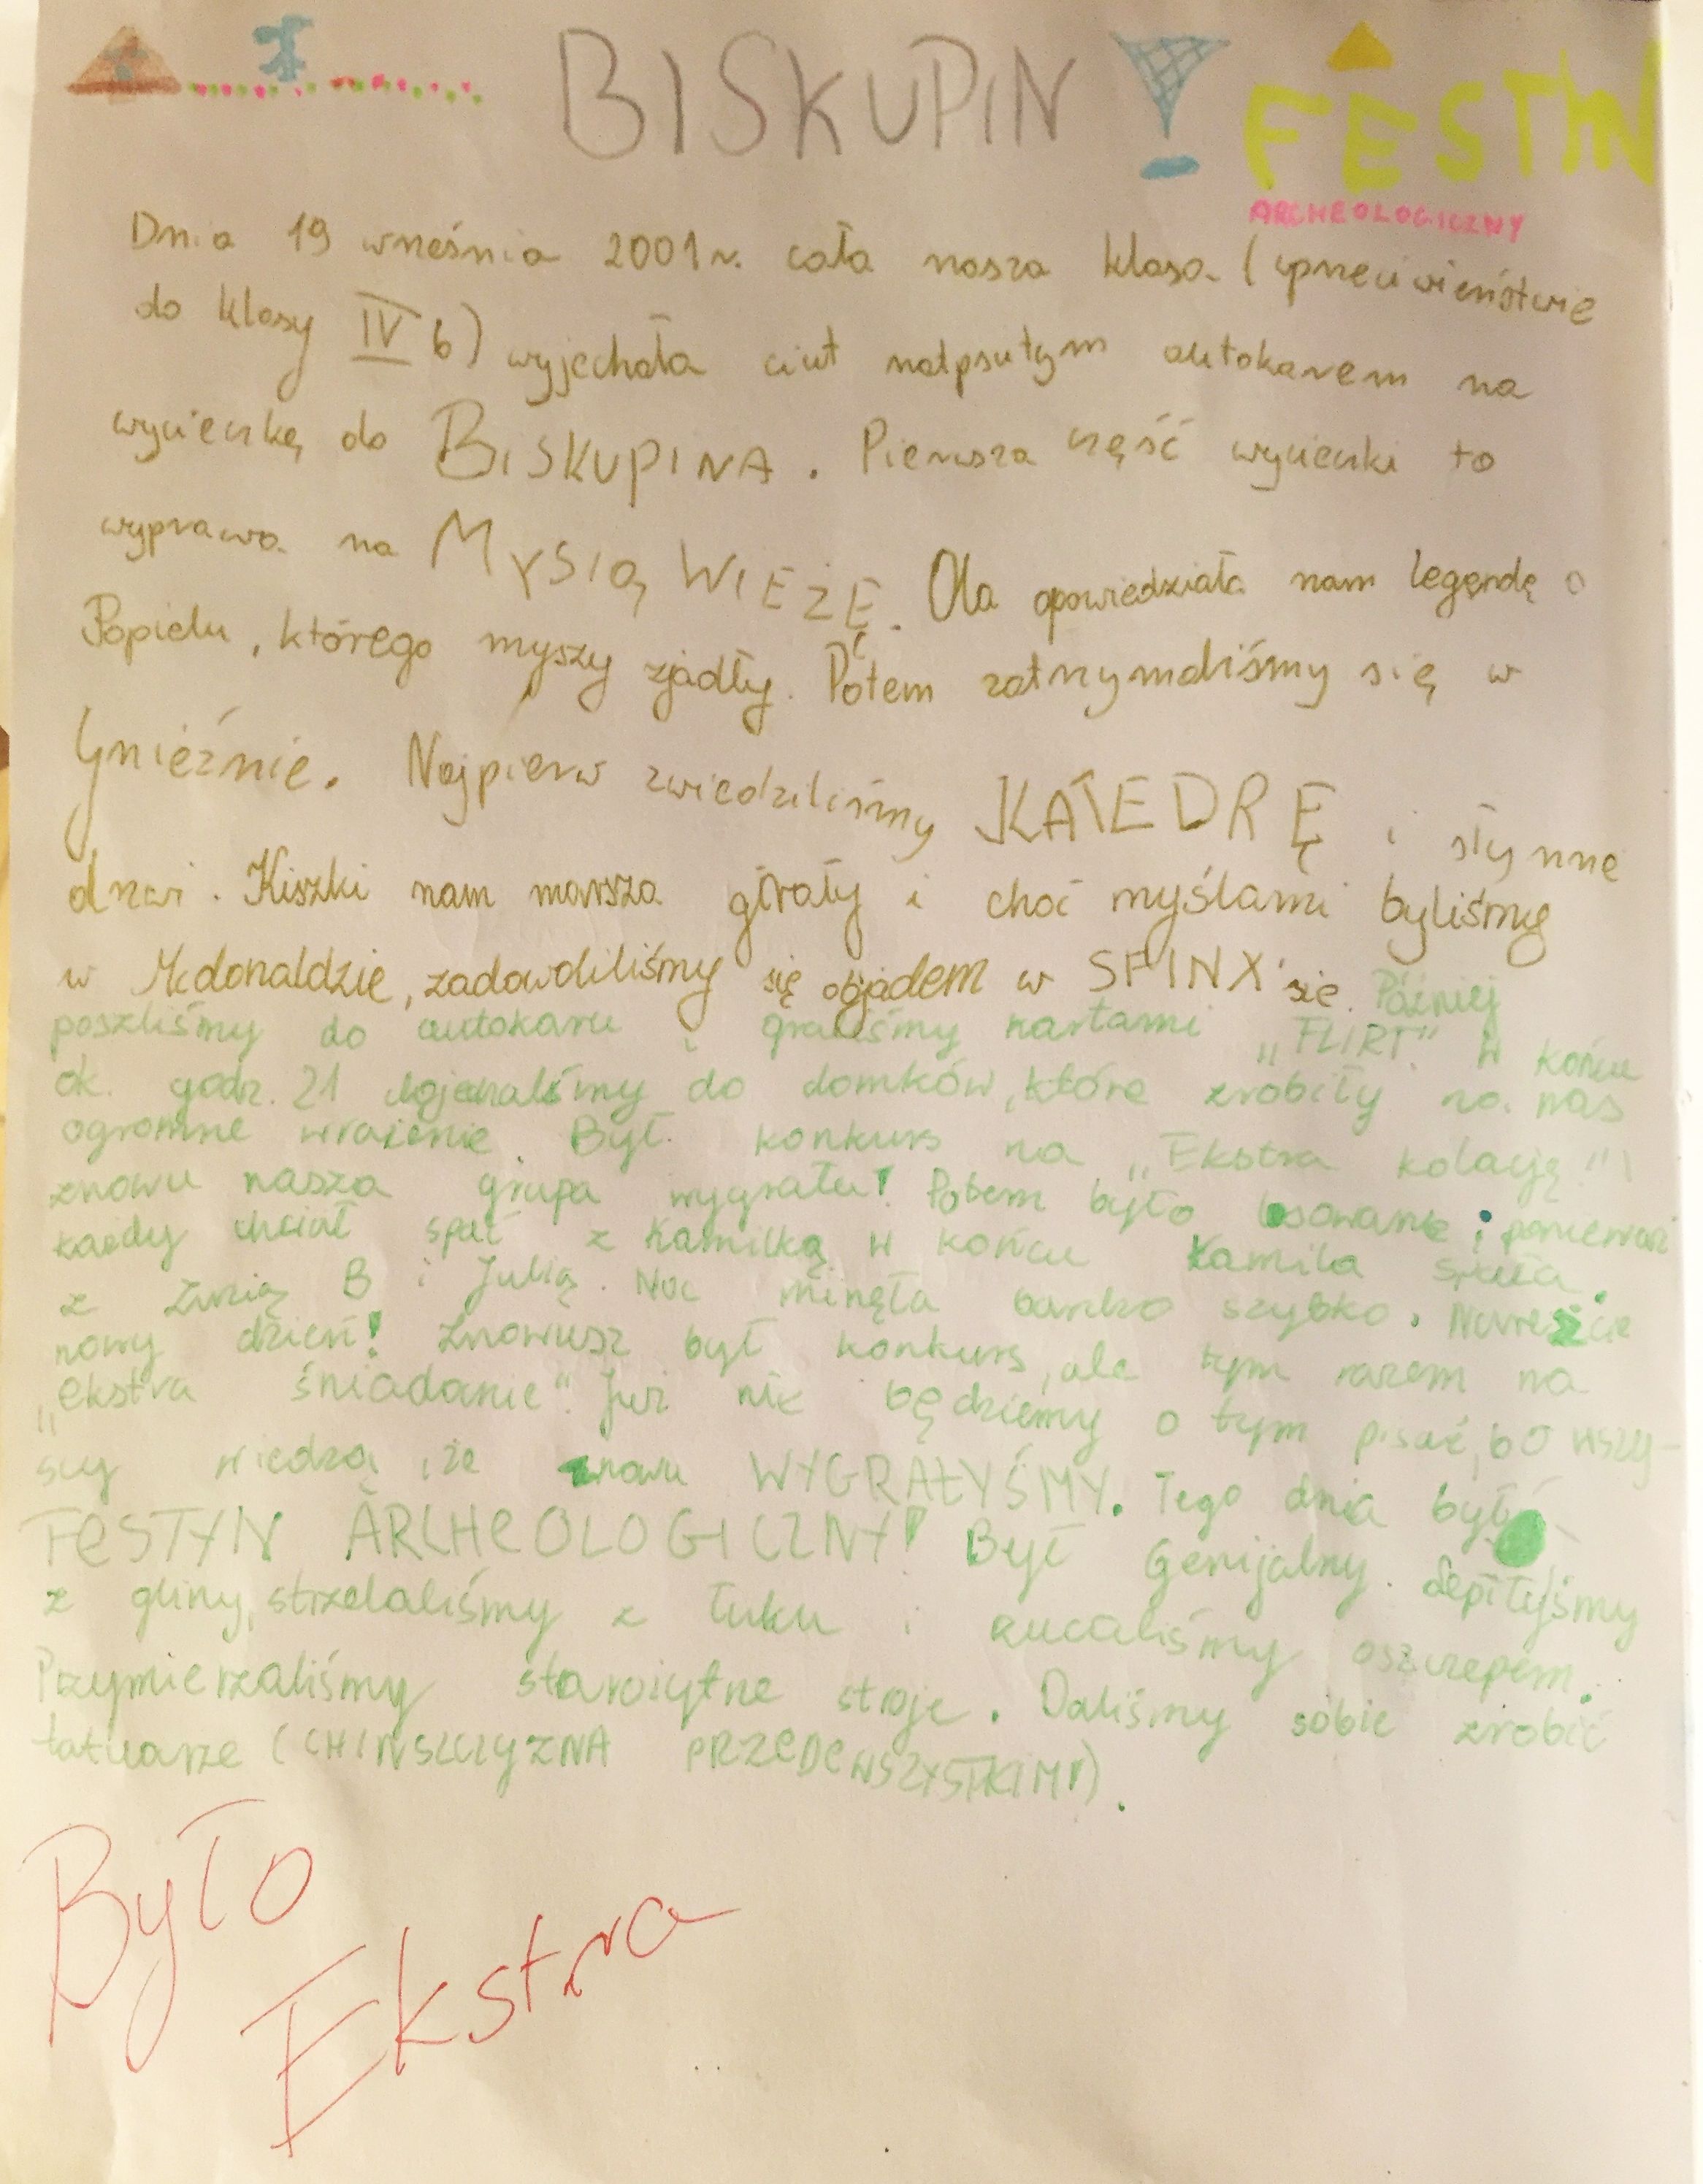 BISKUPIN
FESTYN
ARCHEOLOGICZNY
Dnia 19 września 2001 r. cała nasza klasa (wprzeciwieństwie
do klasy IV b) wyjechała ciut nadpsutym autokarem na
wycieczkę do BISKUPINA. Pierwsza część wycieczki to
wyprawa na MYSIĄ WIEŻĘ. Ola opowiedziała nam legendę o
Popielu, którego myszy zjadły. Potem zatrzymaliśmy się w
Gnieźnie. Najpierw zwiedziliśmy KATEDRĘ i słynne
drzwi. Kiszki nam marsza grały i choć myślami byliśmy
w Mcdonaldzie, zadowoliliśmy się objadem w SFINX'sie. Później
poszliśmy do autokaru i graliśmy kartami „FLIRT". W końcu
ok. godz. 21 dojechaliśmy do domków, które zrobiły na nas
ogromne wrażenie. Był konkurs na „Ekstra kolację" i
znowu nasza grupa wygrała! Potem było losowanie, ponieważ
każdy chciał spać z Kamilką. W końcu Kamila spała
z Zuzią B i Julią. Noc minęła bardzo szybko. Nareszcie
nowy dzień! Znowusz był konkurs, ale tym razem na
„ekstra śniadanie". Już nie będziemy o tym pisać, bo wszy-
scy wiedzą, że znowu WYGRAŁYŚMY. Tego dnia był
FESTYN ARCHEOLOGICZNY! Był Genijalny. Lepiłyśmy
z gliny, strzelaliśmy z łuku i rucaliśmy oszczepem.
Przymierzaliśmy starożytne stroje. Daliśmy sobie zrobić
tatuarze (CHINSZCZYZNA PRZEDEWSZYSTKIM!).
Było
Ekstra